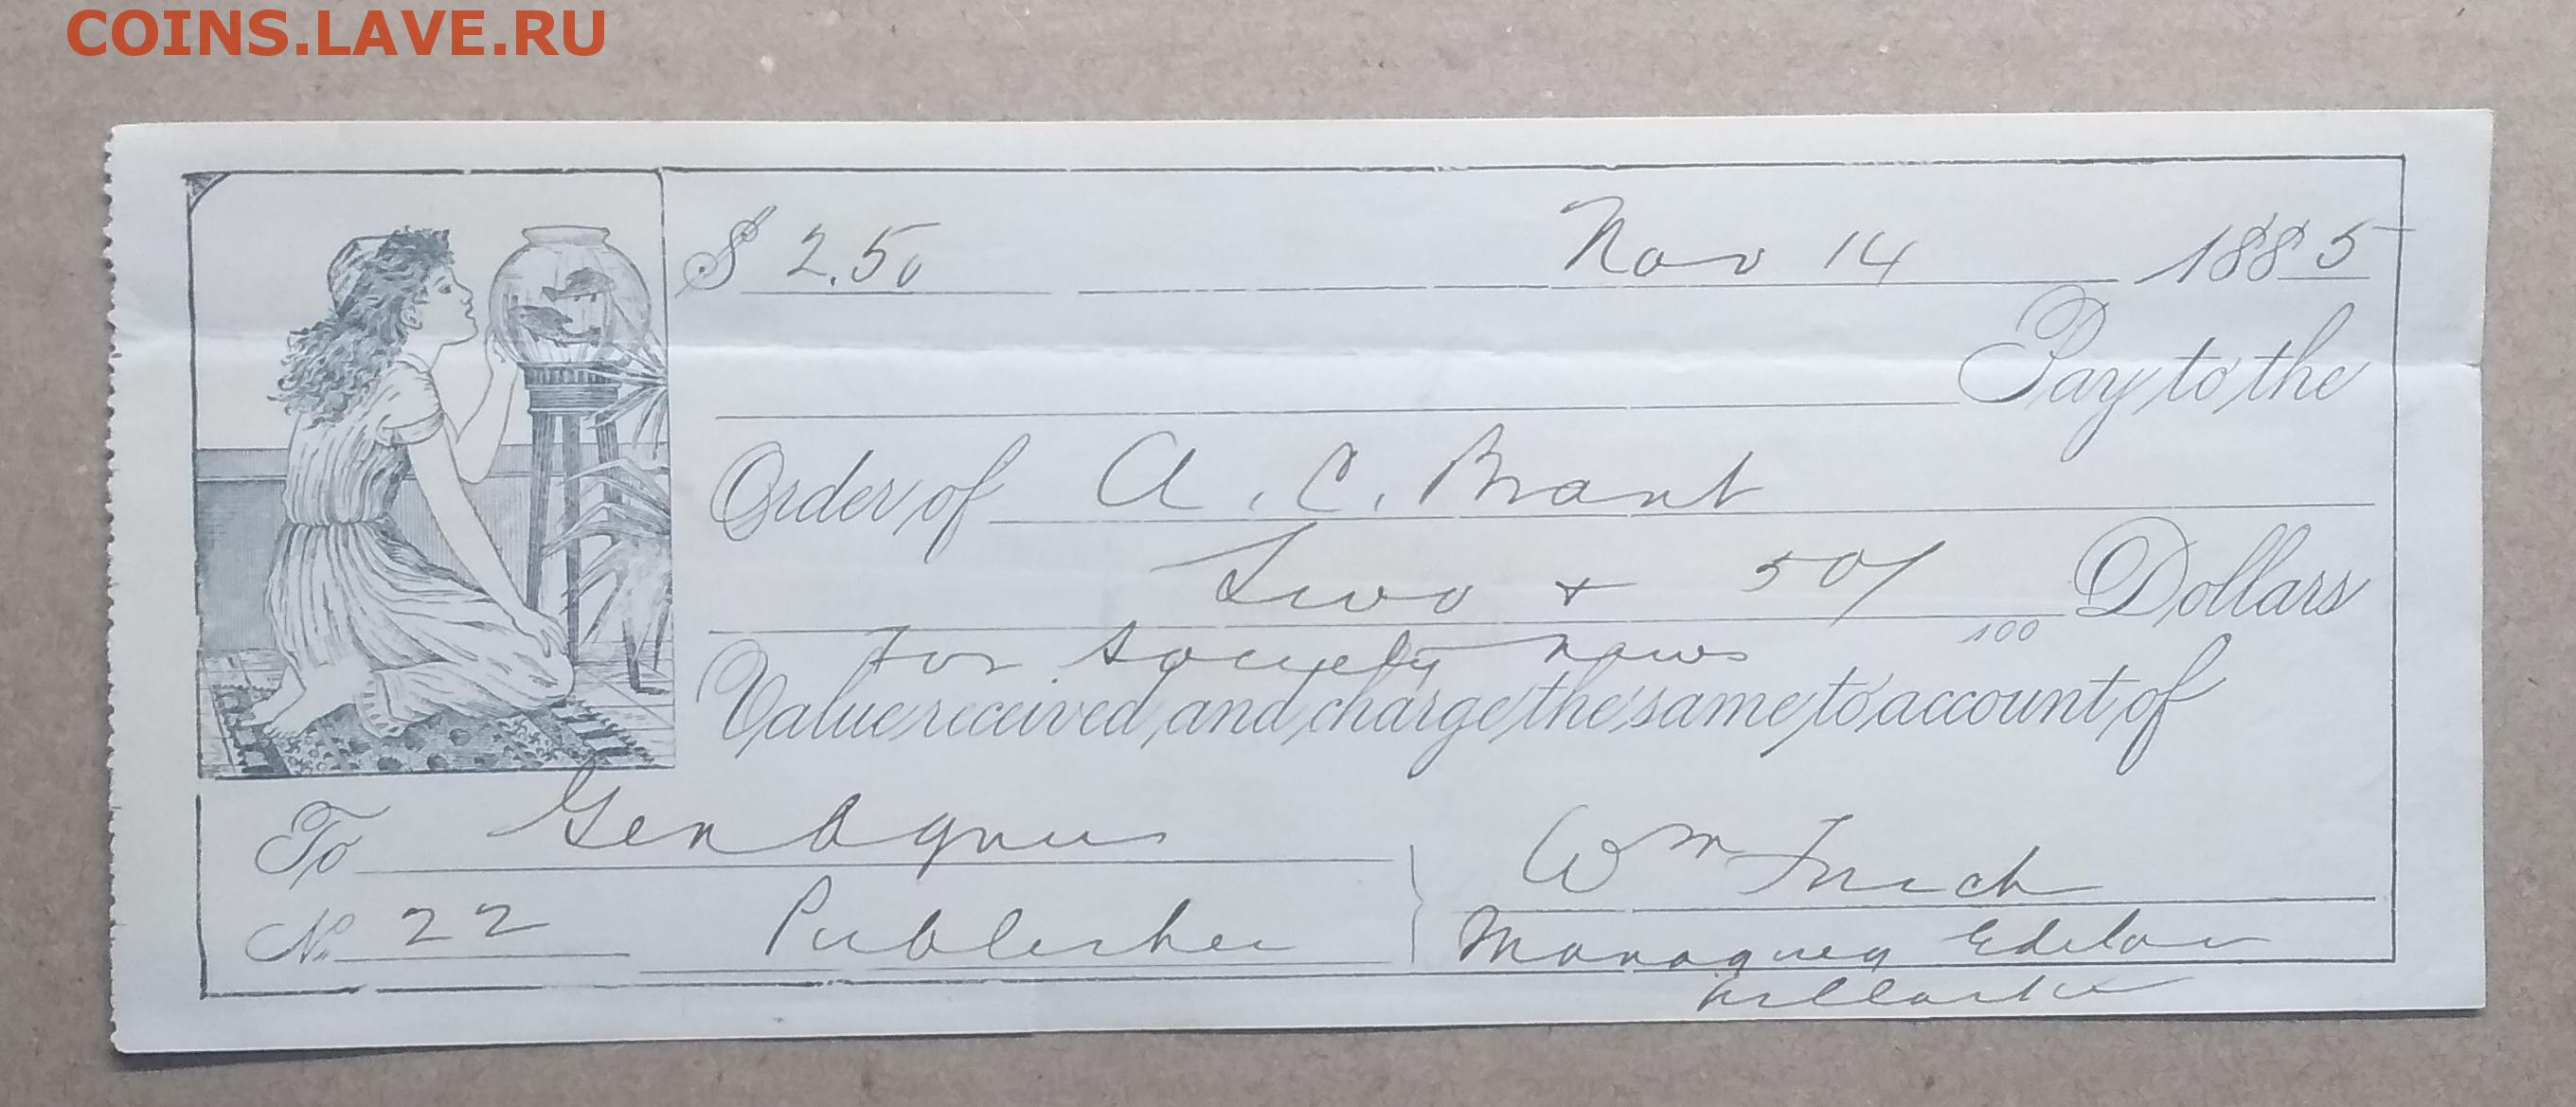 COINS.LAVE.RU
$ 2.50 Nov 14 1885
Pay to the
Order of A. C. Brant
Two + 50/100 Dollars
for society news
Value received and charge the same to account of
To Gen Agnus
Wm
No 22 Publisher
Managing Editor